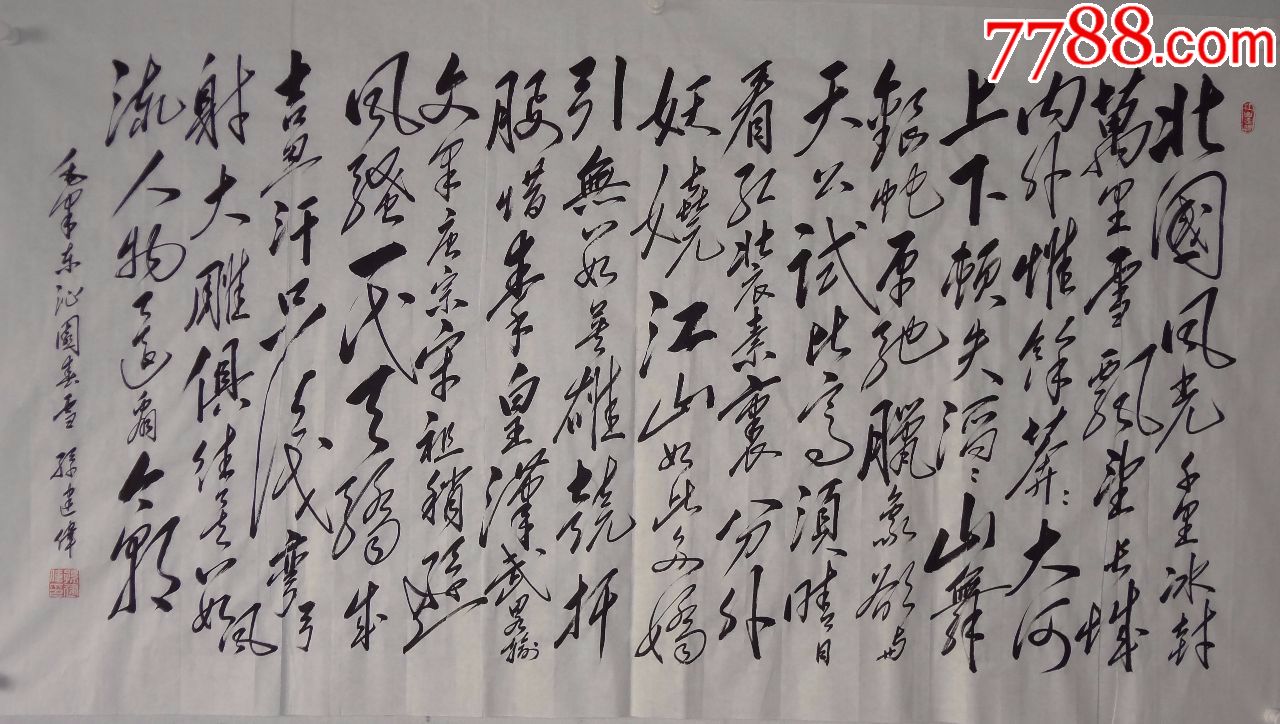 7788.com
北國风光千里冰封
萬里雪飘望长城
内外惟馀莽〻大河
上下顿失滔〻山舞
銀蛇原驰臘象欲与
天公試比高須晴日
看红装素裹分外
妖嬈江山如此多嬌
引無数英雄競折
腰惜秦皇漢武略输
文采唐宗宋祖稍遜
风骚一代天骄成
吉思汗只识弯弓
射大雕俱往矣数风
流人物还看今朝
毛泽东沁園春雪 孫建偉